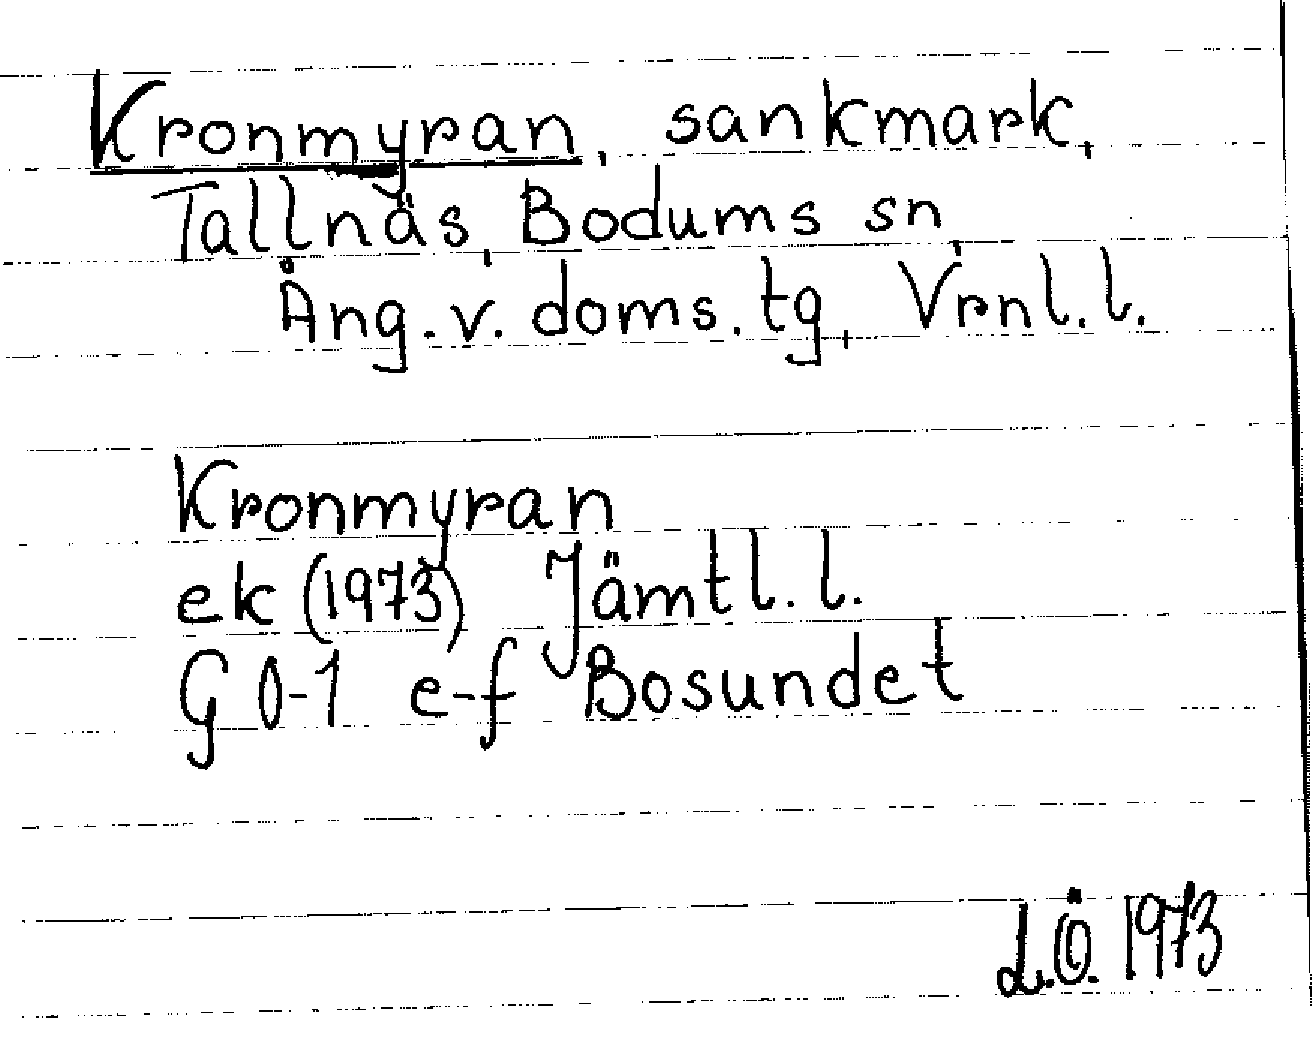 Kronmyran, sankmark,
Tallnäs, Bodums sn,
Ång.v. doms.tg, Vrnl.l.
Kronmyran
ek (1973) Jämtl.l.
G 0-1 e-f Bosundet
L.Ö. 1973